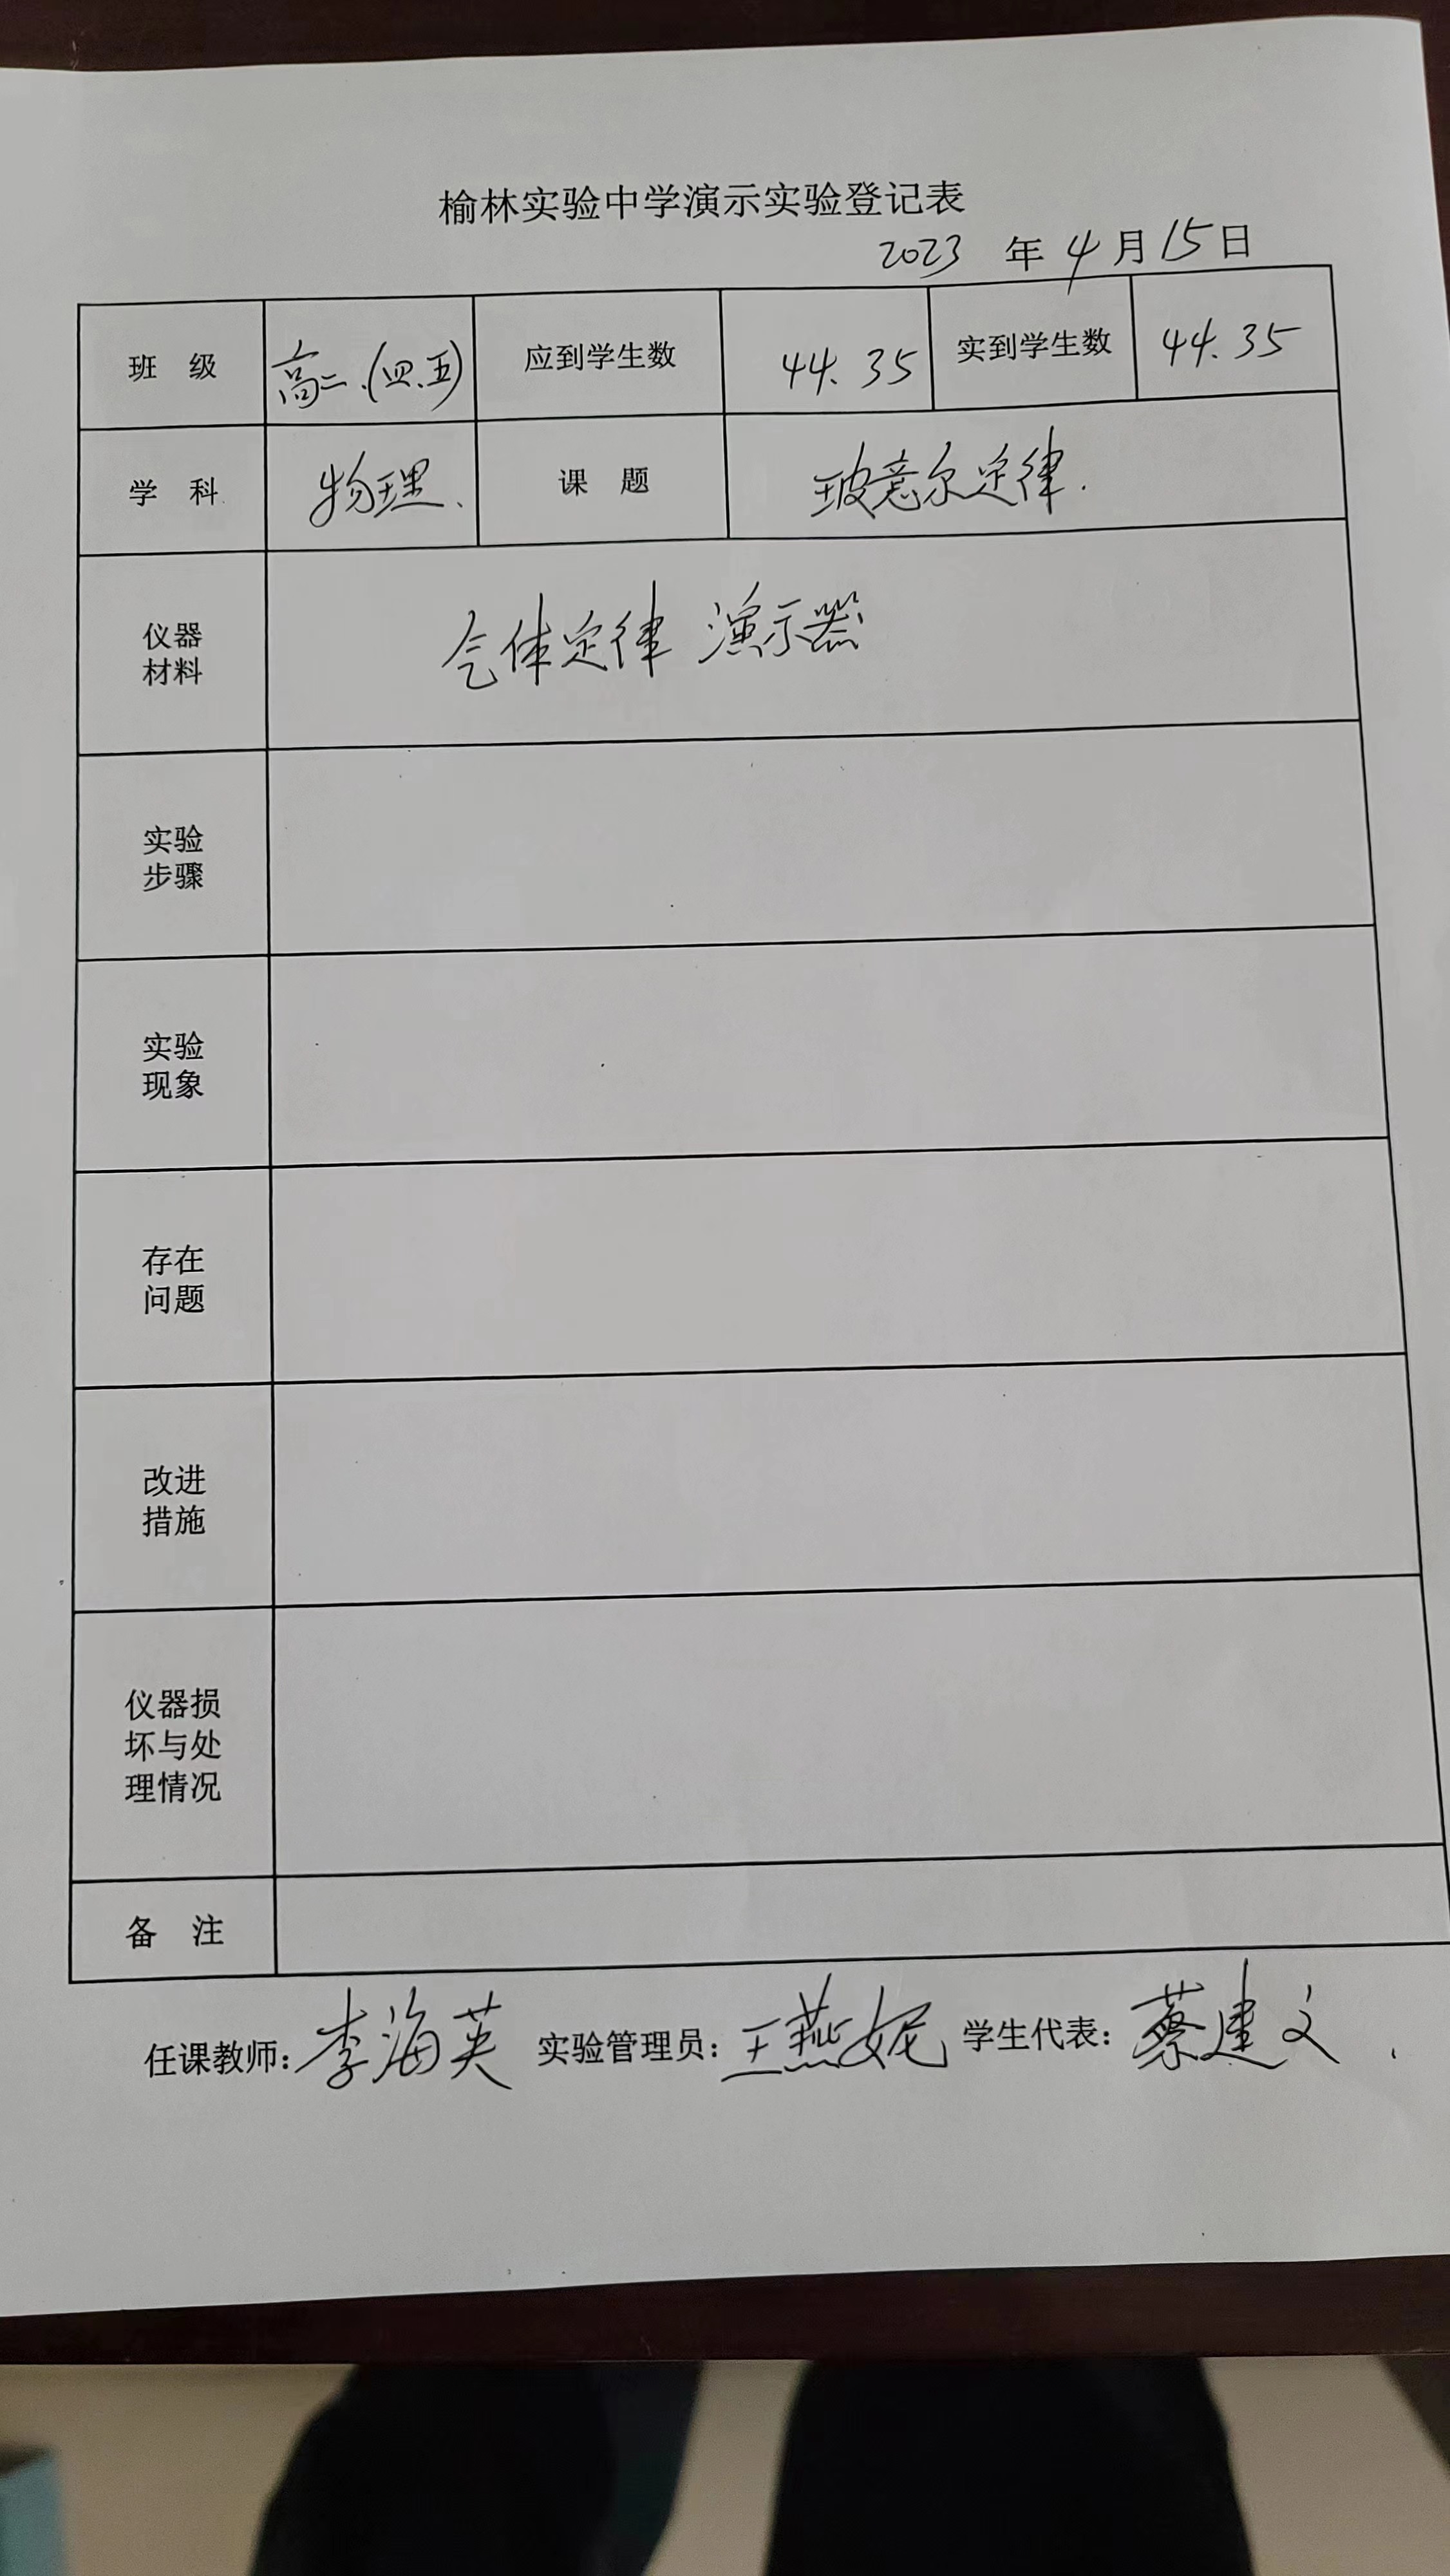 榆林实验中学演示实验登记表
2023 年 4 月 15 日
班 级 高二.(四.五) 应到学生数 44. 35 实到学生数 44. 35
学 科 物理. 课 题 玻意尔定律.
仪器
材料
气体定律 演示器
实验
步骤
实验
现象
存在
问题
改进
措施
仪器损
坏与处
理情况
备 注
任课教师: 李海英 实验管理员: 王燕妮 学生代表: 蔡建文